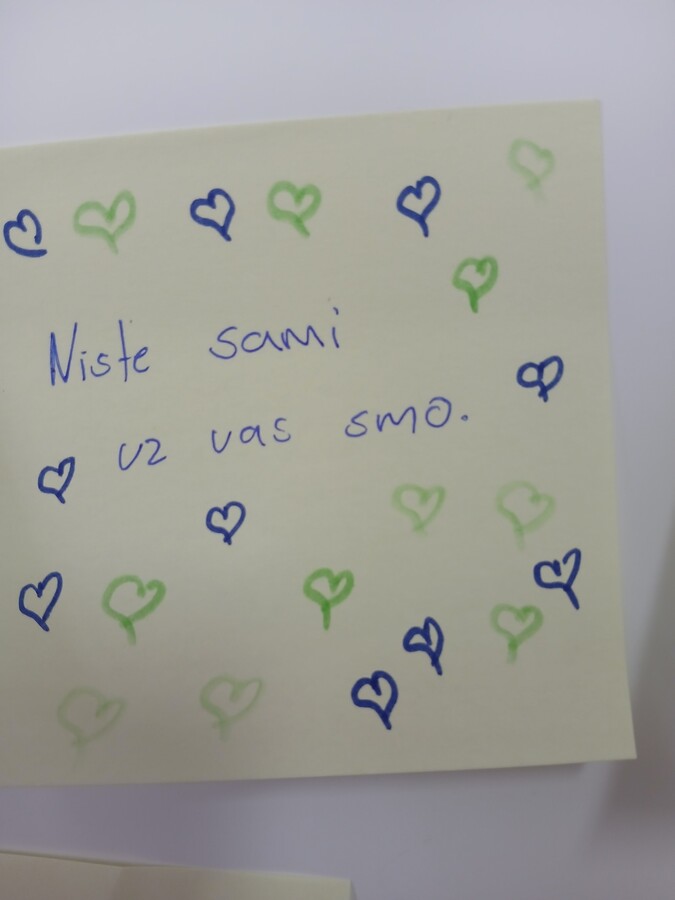 Niste sami
uz vas smo.